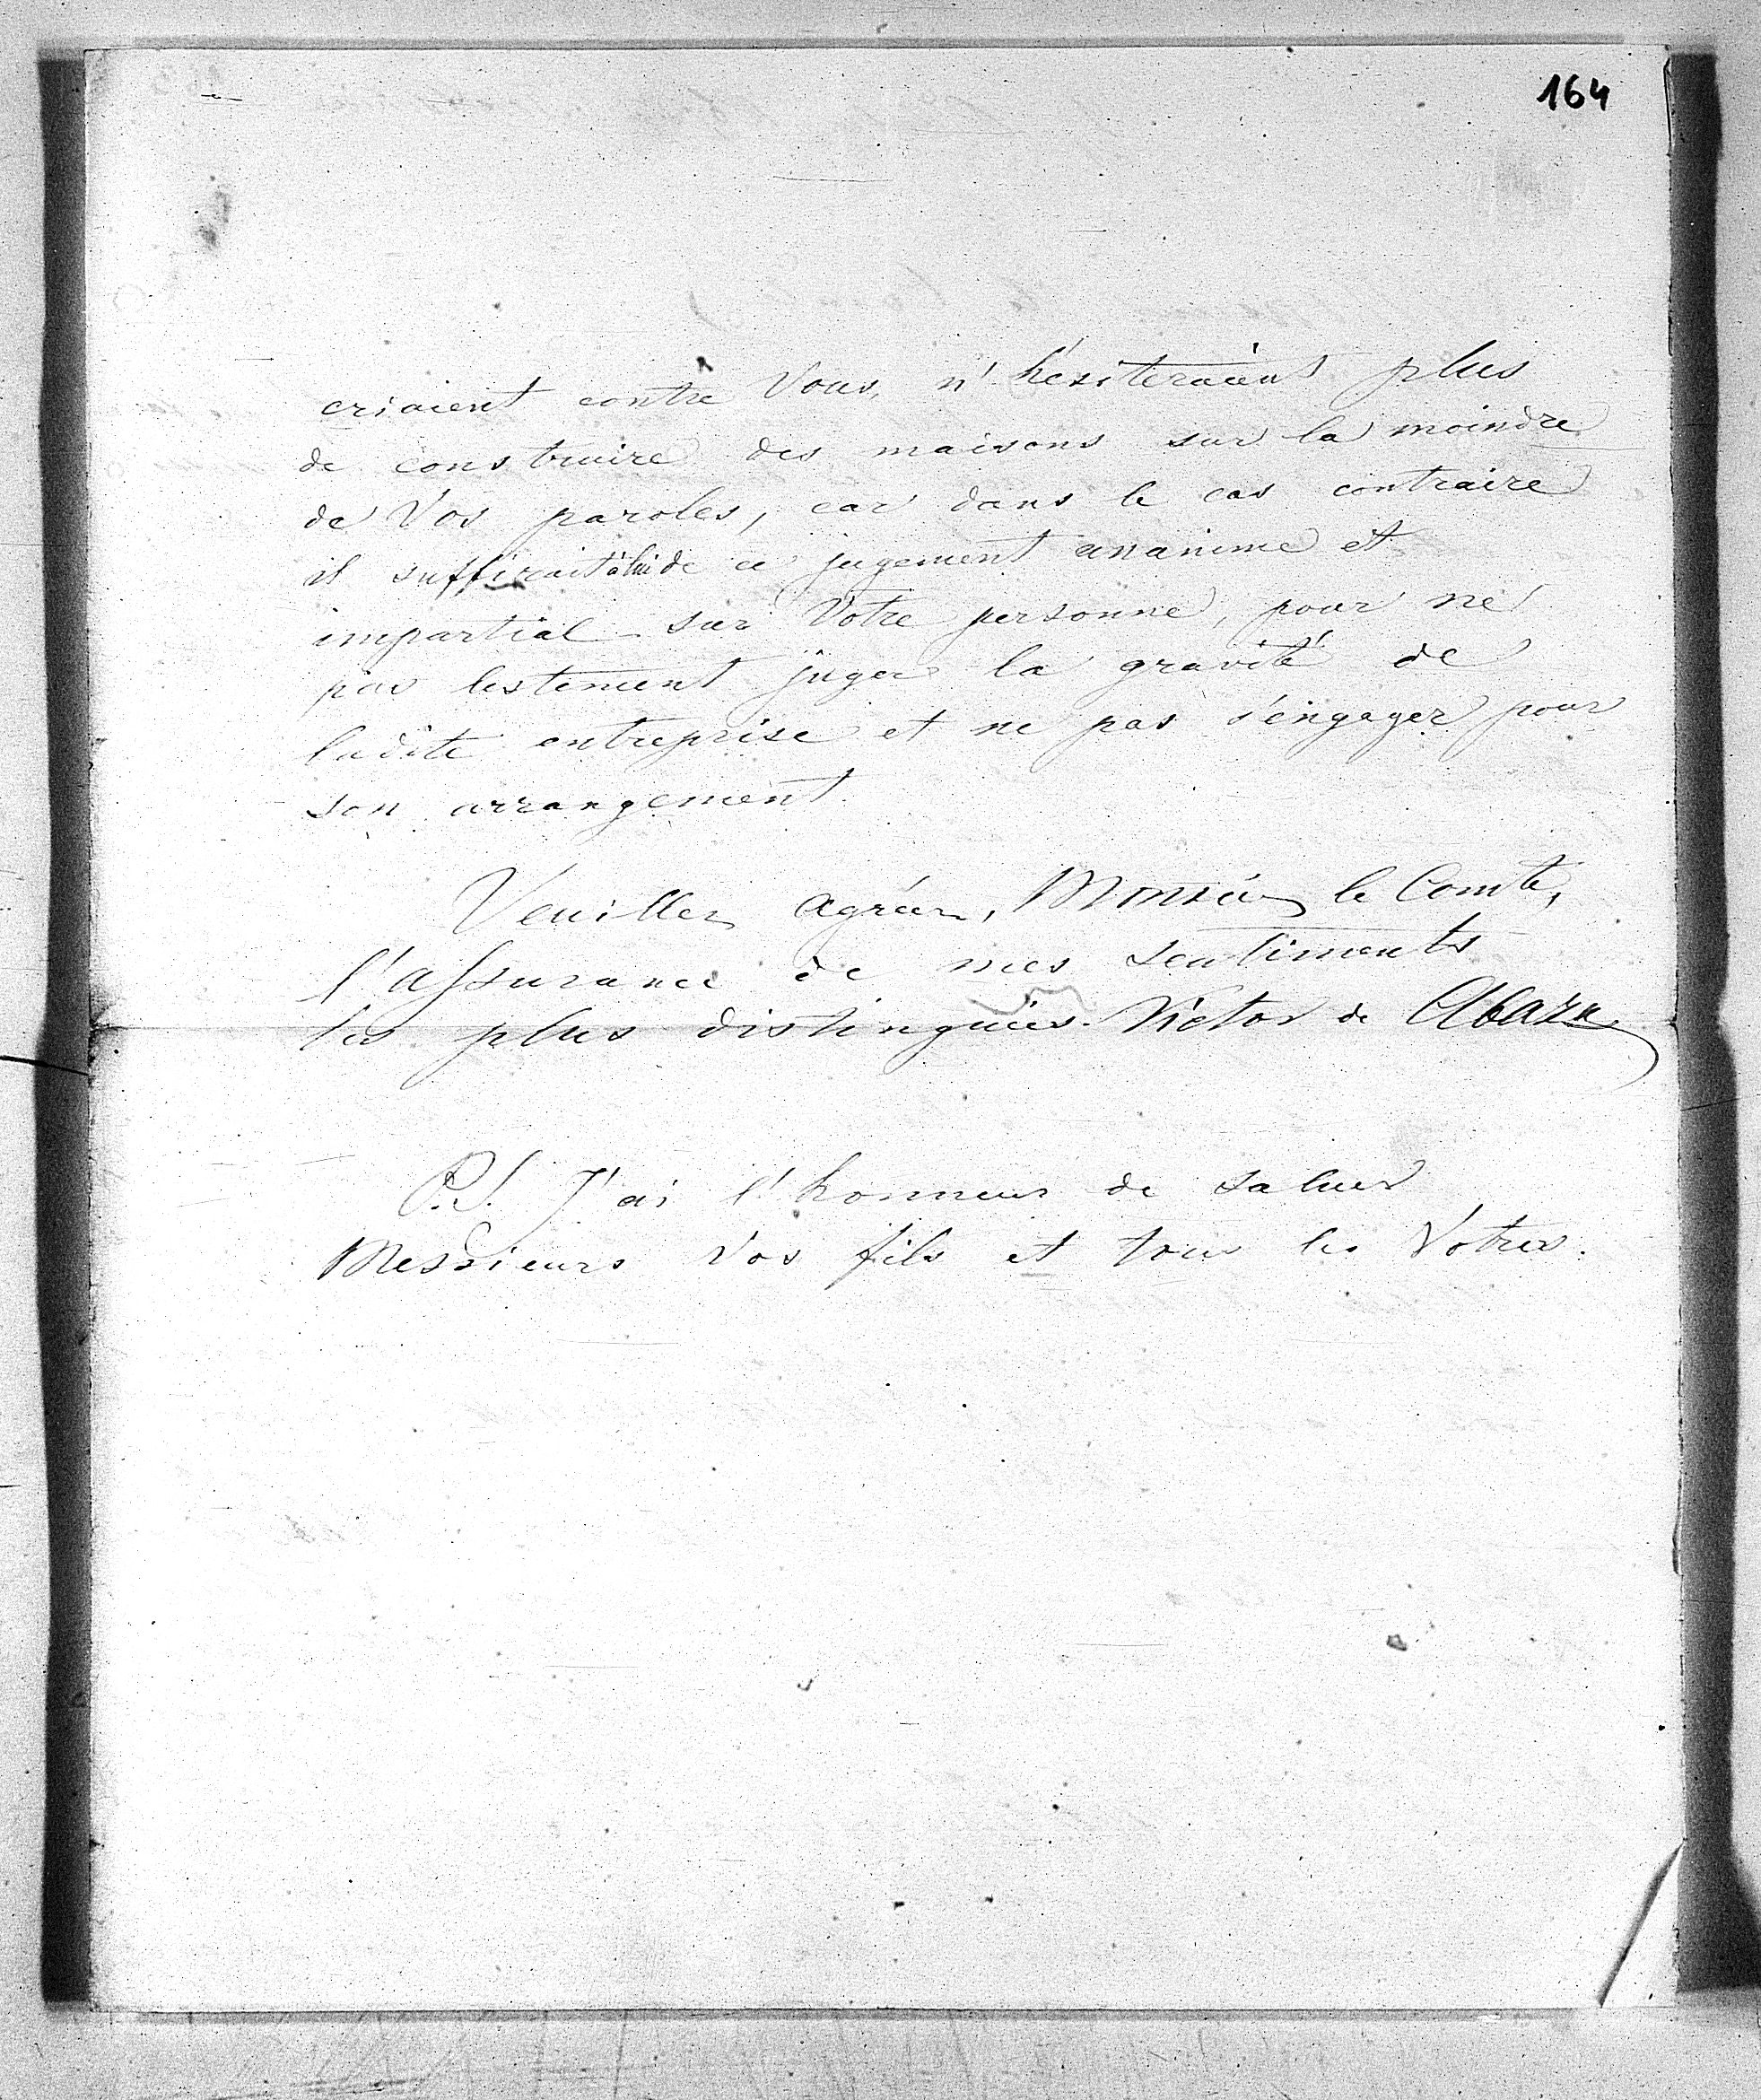 164
criaient contre Vous, n'hésiteraient plus
de construire des maisons sur la moindre
de Vos paroles, car dans le cas contraire
il suffirait à lui de ce jugement unanime et
impartial sur Votre personne, pour ne
pas lestement juger la gravité de
ladite entreprise et ne pas s'engager pour
son arrangement.
Veuillez agréer, Monsieur le Comte,
l'assurance de mes sentiments
les plus distingués. Victor de Abaza
P.S. J'ai l'honneur de saluer
Messieurs Vos fils et tous les Votres.